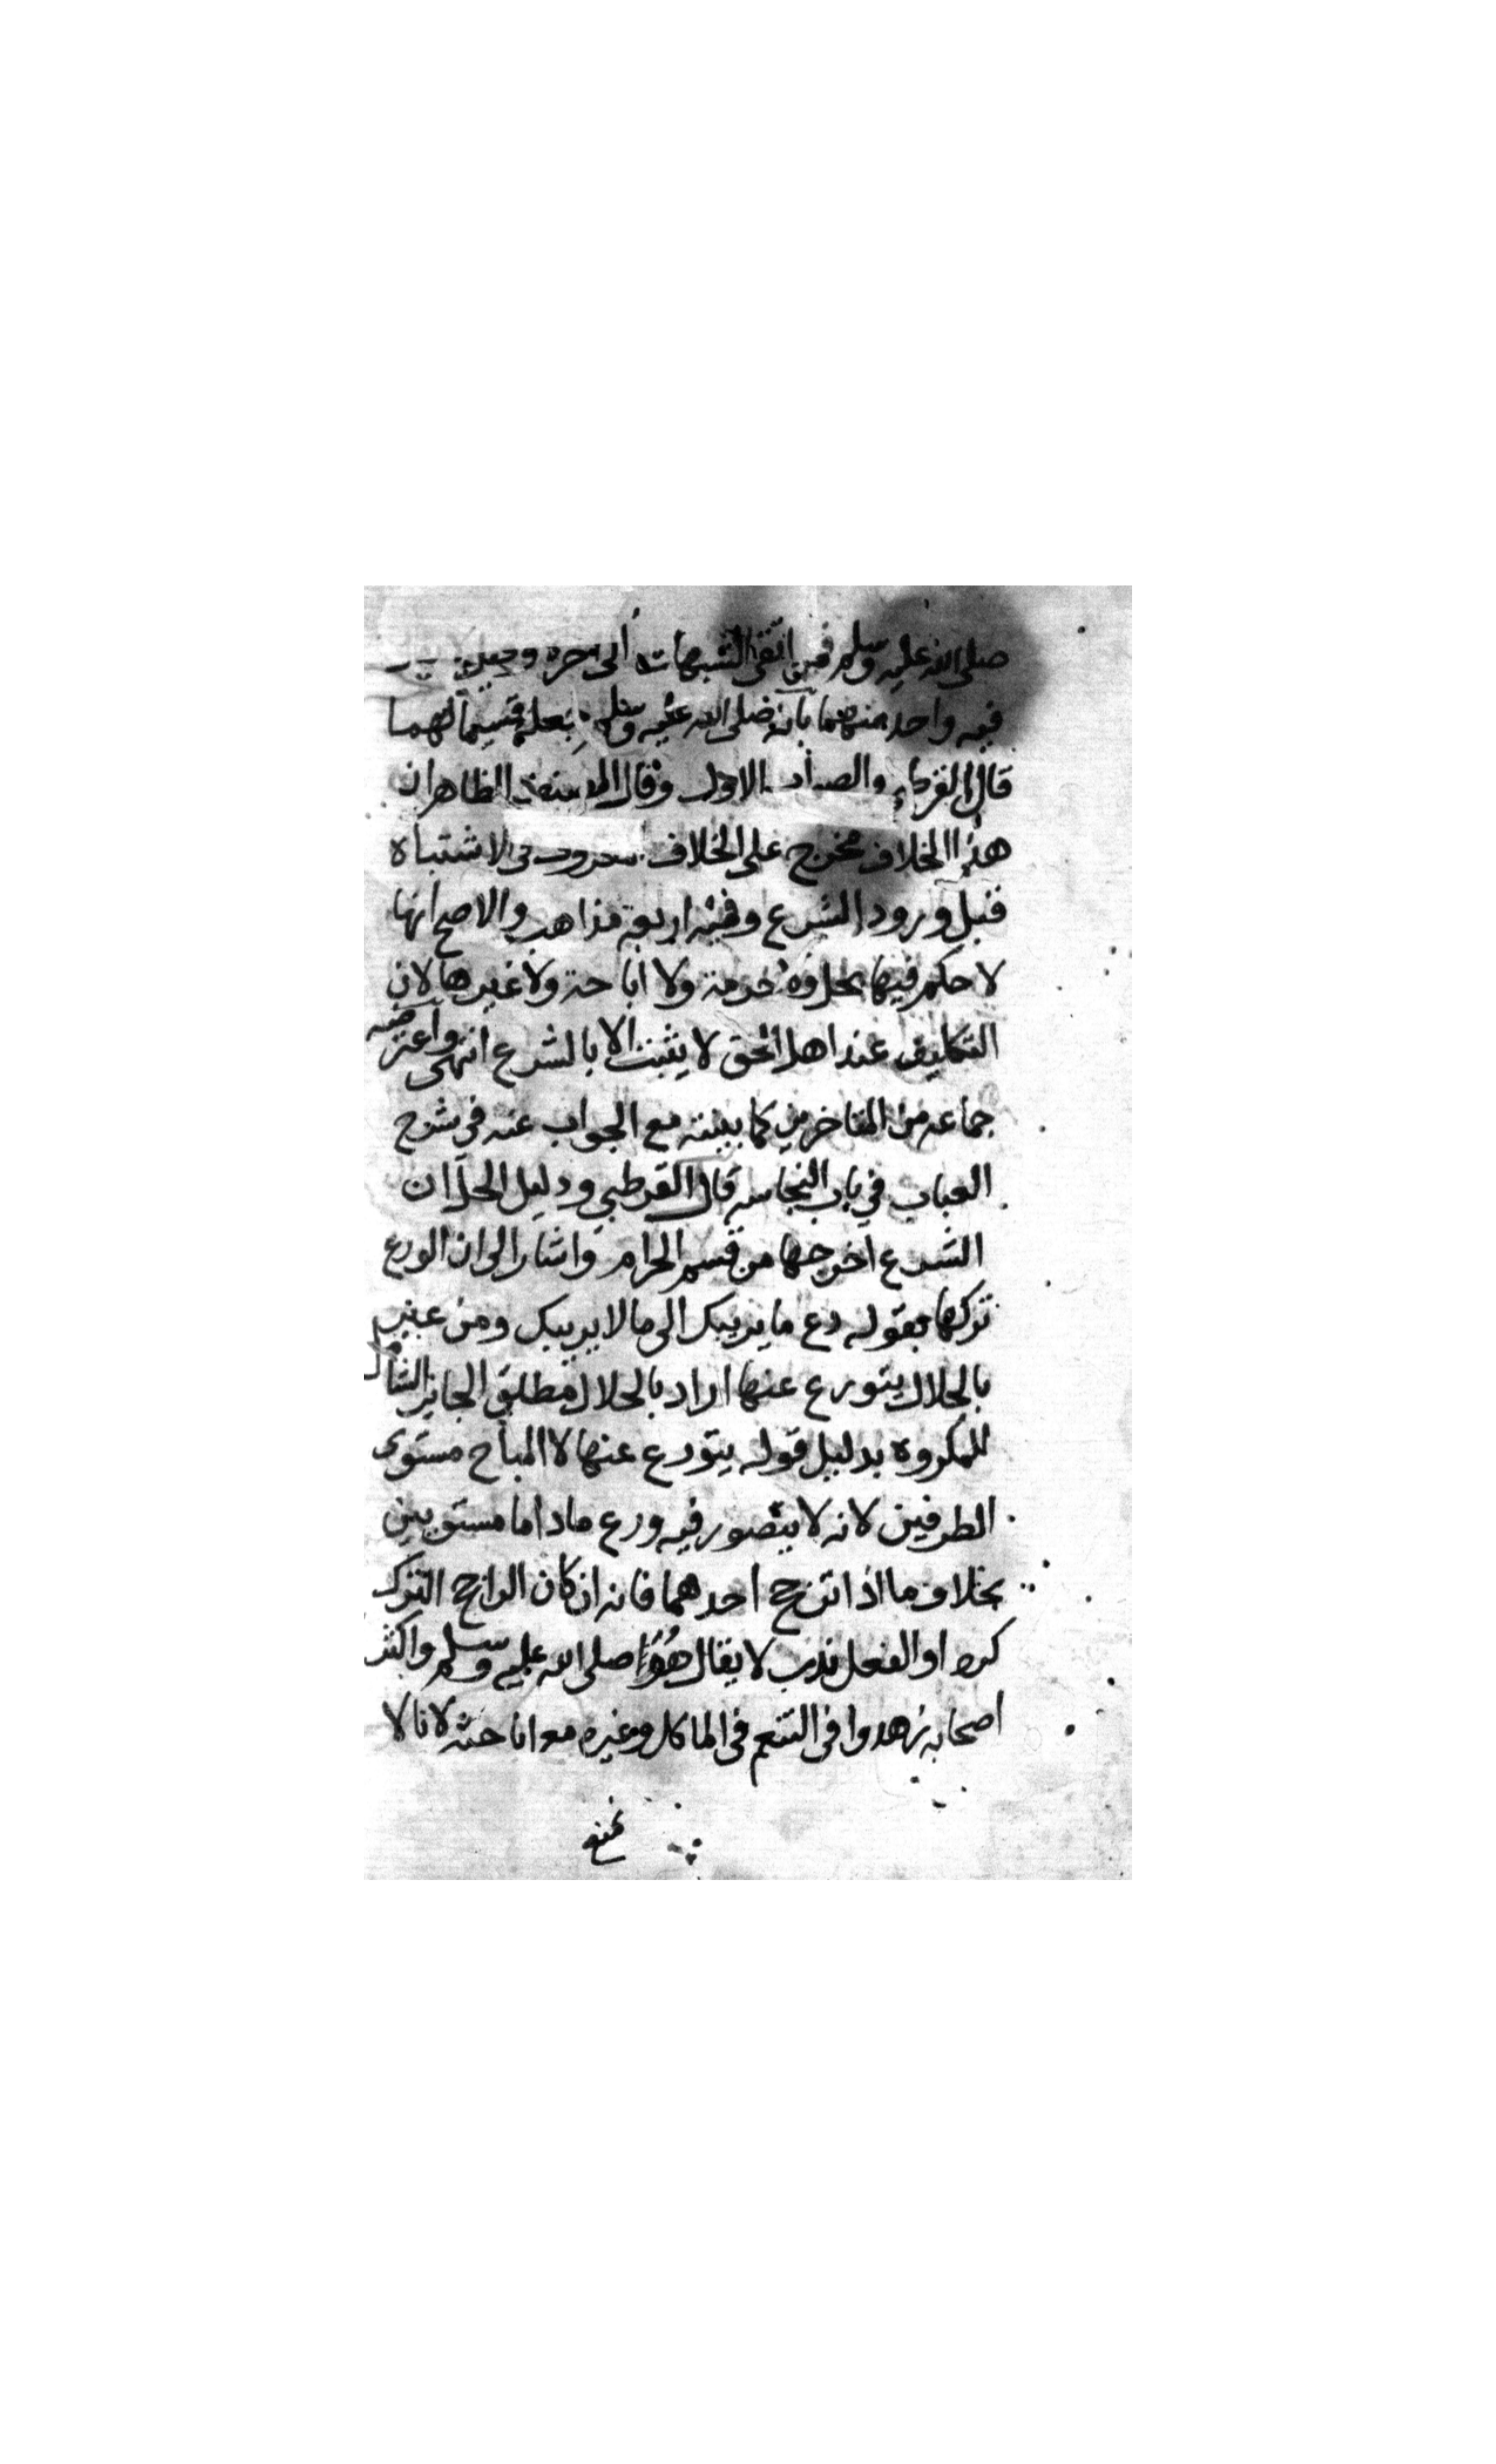 صلى الله عليه وسلم فمن اتقى الشبهات الى اخره وقيل
فيه واحد منهما بانه صلى الله عليه وسلم جعله قسيما لهما
قال القرطبي والصواب الاول وقال المصنف الظاهر ان
هذا الخلاف مخرج على الخلاف في الاشتباه
قبل ورود الشرع وفيه اربعة مذاهب والاصح انها
لا حكم فيها بحل ولا حرمة ولا اباحة ولا غيرها لان
التكليف عند اهل الحق لا يثبت الا بالشرع انتهى واعترضه
جماعه من المتاخرين كما بينته مع الجواب عنه في شرح
العباب في باب النجاسه قال القرطبي ودليل الحل ان
الشرع اخرجها من قسم الحرام واشار الى ان الورع
تركها بقوله دع ما يريبك الى ما لا يريبك ومن عبر
بالحلال يتورع عنها اراد بالحلال مطلق الجايز الشامل
للمكروه بدليل قوله يتورع عنها لا المباح مستوى
الطرفين لانه لا يتصور فيه ورع ماداما مستويين
بخلاف ما اذا ترجح احدهما فانه ان كان الراجح الترك
كره او الفعل ندب لا يقال هو صلى الله عليه وسلم واكثر
اصحابه زهدوا في التنعم في الماكل وغيره مع اباحته لانا لا
نمنع